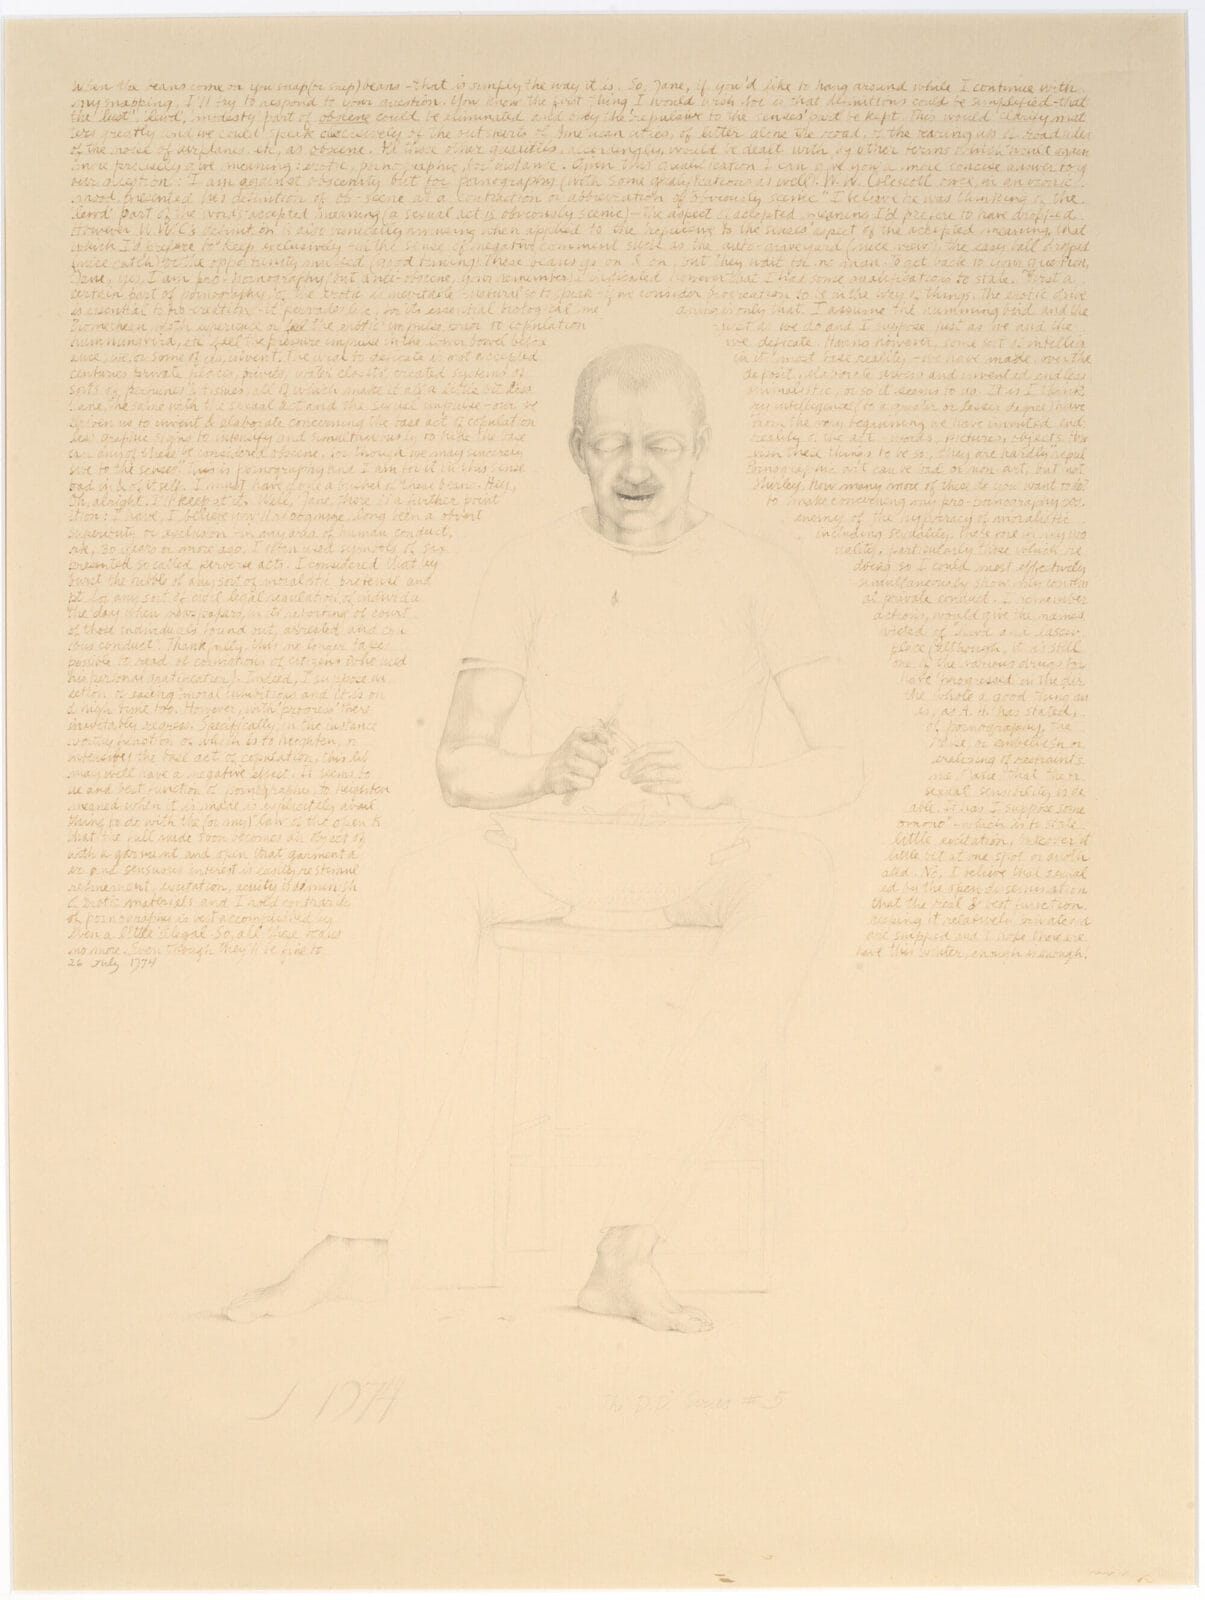 When the beans come on you snap (or snip) beans – that is simply the way it is. So, Jane, if you'd like to hang around while I continue with
my snapping, I'll try to respond to your question. You know the first thing I would wish for is that definitions could be simplified – that
the "lust", "lewd", modesty part of obscene could be eliminated and only the "repulsive to the senses" part be kept. This would clarify mat
ters greatly and we could speak exclusively of the outskirts of American cities, of litter along the road, of the tearing up of roadsides
of the noise of airplanes, etc, as obscene. All those other qualities, accordingly, would be dealt with by other terms which would even
more precisely give meaning: erotic, pornographic, for instance. Given this qualification I can give you a more concise answer to y
our question: I am against obscenity but for pornography (with some qualifications as well). W. W. Colescott once, in an ironic
mood, presented his definition of ob-scene as a contraction or abbreviation of "obviously scenic". I believe he was thinking of the
"lewd" part of the word's accepted meaning (a sexual act is obviously scenic) – the aspect of accepted meaning I'd prefer to have dropped.
However W. W. C.'s definition is also especially amusing when applied to the repulsive to the senses aspect of the accepted meaning, that
which I'd prefer to keep exclusively – in the sense of negative comment such as the auto-graveyard (nice view), the easy ball dropped
(nice catch) or the opportunity missed (good timing). These beans go on & on, but they wait for no man. To get back to your question,
Jane, yes, I am pro-pornography (but anti-obscene, you remember). I indicated however that I had some qualifications to state. First a
certain part of pornography, of the erotic is inevitable – natural so to speak – if we consider procreation to be in the way of things. The erotic drive
is essential to pro-creation – it pervades life, for its essential biological me aning is only that. I assume the hummingbird and the
Promethean moth experience or feel the erotic impulse prior to copulation just as we do and I suppose just as we and the
hummingbird, etc feel the pressure impulse in the lower bowel before we defecate. Having however, some sort of intellig
ence, we, or some of us, invent. The urge to defecate is not accepted in it's most base reality, – we have made over the
centuries private places, privies, water closets, created systems of deposit, elaborate sewers and invented endless
sorts of perfumed tissues, all of which make it all a little bit less animalistic, or so it seems to do. It is I think,
Jane, the same with the sexual act and the sexual impulse – our ve ry intelligence (to a greater or lesser degree) have
given us to invent & elaborate concerning the base act of copulation from the very beginning we have invented end
less graphic signs to intensify and simultaneously to hide the base reality of the act – words, pictures, objects. How
can any of these be considered obscene, for though we may sincerely wish these things to be so, they are hardly "repul
sive to the senses". This is pornography and I am for it in this sense Pornographic art can be bad or non-art, but not
bad in & of itself. I must have done a bushel of these beans. Hey, Shirley, how many more of these do you want to do?
Oh, alright. I'll keep at it. Well, Jane, there is a further point to make concerning my pro-pornography pos
ition: I have, I believe you'll recognize, long been a ob enemy of the hypocracy of moralistic
superiority or exclusion – in any area of human conduct, including sexuality.
ate, 30 years or more ago, I often used symbols of sex uality, particularly those which re
presented so called perverse acts. I considered that by doing so I could most effectively
burst the bubble of any sort of moralistic pretense and simultaneously show my contem
pt for any sort of civil legal regulation of individu al private conduct. I remember
the day when newspapers, in its reporting of court actions, would give the names
of those individuals found out, arrested and con victed of lewd and lasciv
ious conduct". Thankfully, this no longer takes place (although, it is still
possible to read of convictions of citizens who used one of the various drugs for
his personal gratification). Indeed, I suppose we have progressed in the dir
ection of easing moral inhibitions and it is on the whole a good thing an
d high time too. However, with "progress" there is, as A. H. has stated,
inevitably regress. Specifically, in the instance of pornography, the
worthy function of which is to heighten, or raise, or embellish or
intensify the base act of copulation, this lib eralizing of restraints
may well have a negative effect. It seems to me, Jane, that the tr
ue and best function of pornography, to heighten sexual sensibility is de
meaned when it is made is explicitely avail able. It has I suppose some
thing to do with the (or my) "law of the open k – which is to state
that the full nude soon becomes an object of little excitation, but cover it
with a garment and open that garment a little bit at one spot or anoth
er and sensuous interest is easily re-stimul ated. No, I believe that sexual
refinement, excitation, acuity is diminish ed by the open dissemination
of erotic materials and I hold that the real & best function
of pornography is best accomplished by keeping it relatively private and
even a little illegal. So, all these beans are snapped and I hope there are
no more. Even though they'll be fine to have this winter, enough is enough!
26 July 1974
J 1974
The D.D. Series # 5